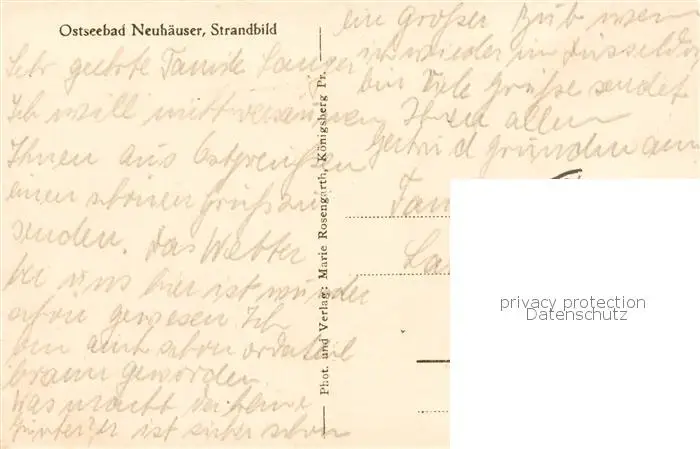 Ostseebad Neuhäuser, Strandbild
Sehr geehrte Familie Langer
Ich will nicht versäumen
Ihnen aus Ostpreußen
einen schönen Gruß zu
senden. Das Wetter
bei uns hier ist wunder
schön gewesen Ich
bin auch schon ordentl
braun geworden
Was macht der kleine
Günter? er ist sicher schon
Phot. und Verlag: Marie Rosengarth, Königsberg Pr.
ein großer Bub wenn
ich wieder in Düsseldorf
bin Viele Grüße sendet
Ihnen allen
Gertrud
Fam
La
privacy protection
Datenschutz